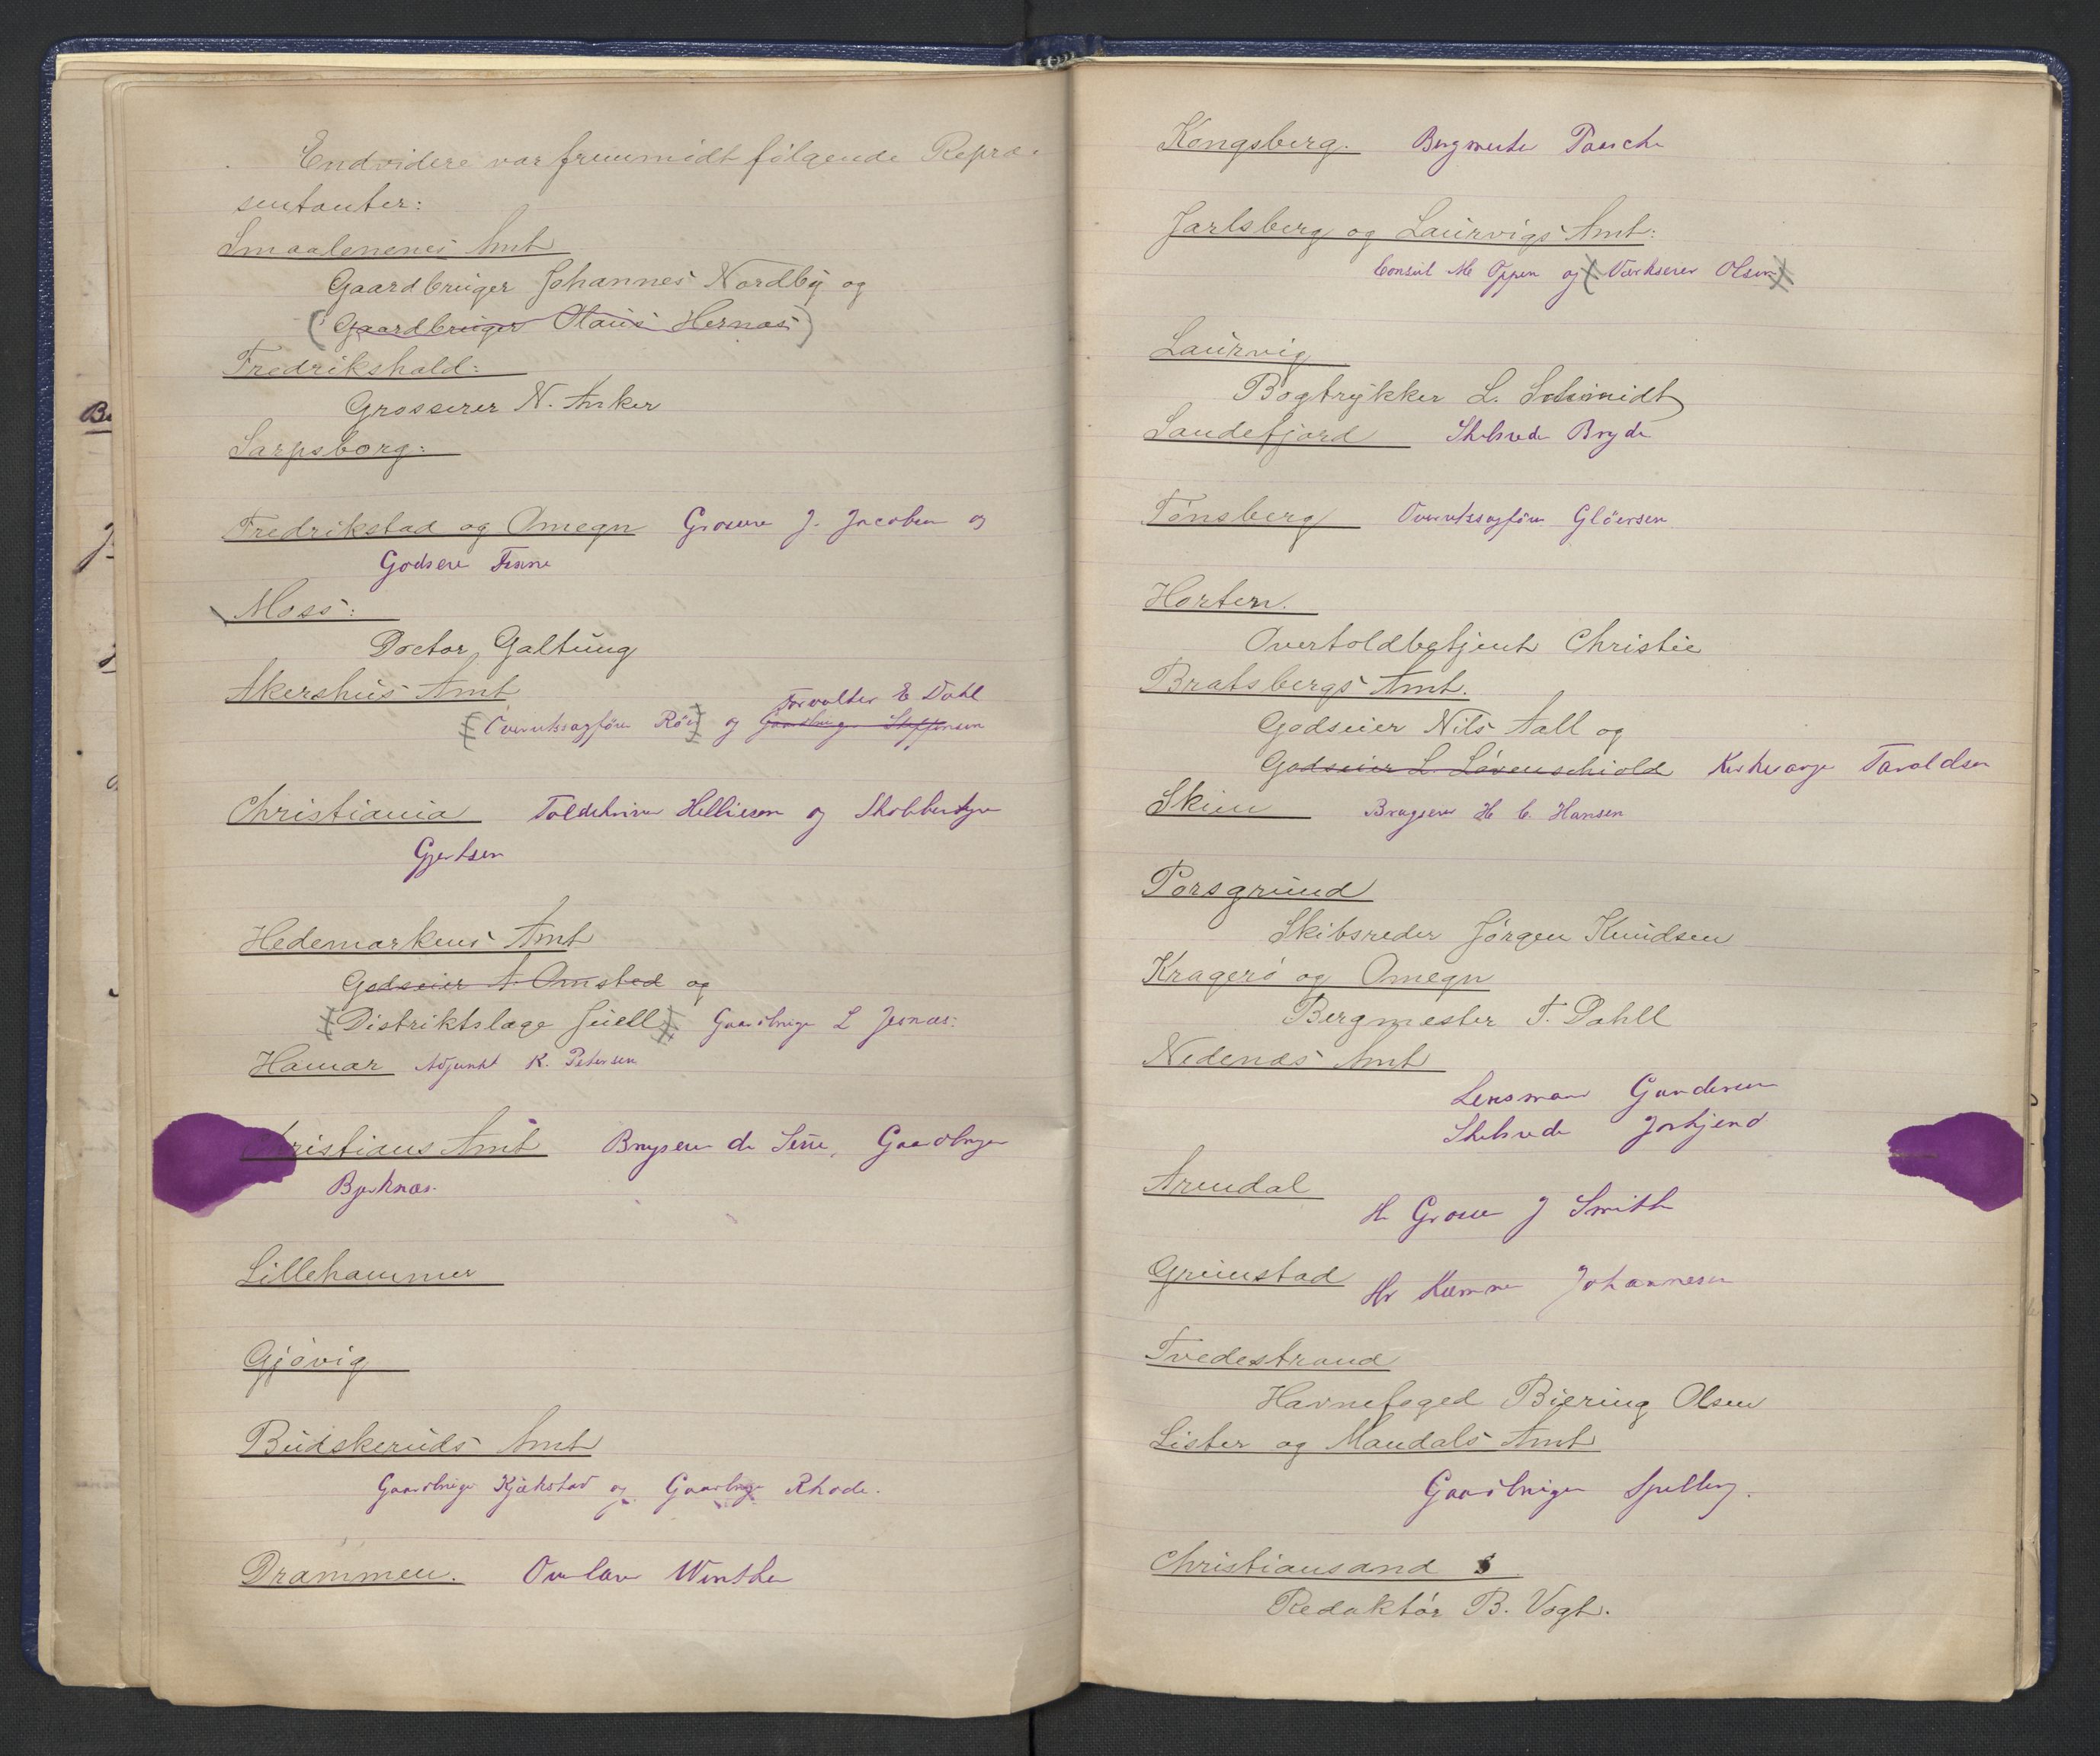 Endvidere var fremmødt følgende Repræ-
sentanter:
Smaalenenes Amt
Gaardbruger Johannes Nordby og
(Gaardbruger Olaus Hernæs)
Fredrikshald:
Grosserer N. Anker
Sarpsborg:
Fredrikstad og Omegn Grosserer J. Jacobsen og
Godseier
Moss:
Doctor Galtung
Akershus Amt
Forvalter E Dahl
(Overretssagfører og Gaardbruger Steffensen
Christiania Toldskriver Helliesen og
Gjertsen
Hedemarkens Amt
Godseier A. Onstad og
(Distriktslæge Juell) Gaardbruger L Jesnæs.
Hamar Adjunkt K. Petersen
Christians Amt Brugseier de Seue, Gaardbruger
Bjerknæs.
Lillehammer
Gjøvig
Budskeruds Amt
Gaardbruger Kjekstad og Gaardbruger Rhode.
Drammen. Overlærer Winther
Kongsberg. Bergmester Paasche
Jarlsberg og Laurvigs Amt:
Consul M Oppen og (Værkseier Olsen)
Laurvig
Bogtrykker L. Schmidt
Sandefjord Skibsreder Bryde
Tønsberg Overretssagfører Gløersen
Horten.
Overtoldbetjent Christie
Bratsbergs Amt.
Godseier Nils Aall og
Godseier L. Løvenschiold Kirkeværge Taraldsen
Skien Brugseier H C. Hansen
Porsgrund
Skibsreder Jørgen Knudsen
Kragerø og Omegn
Bergmester T. Dahll
Nedenæs Amt
Lensmand Gundersen
Skibsreder
Arendal
Hr Grosserer J Smith
Grimstad Hr Kæmner Johannesen
Tvedestrand
Havnefoged Biering Olsen
Lister og Mandals Amt
Gaardbruger Spilling.
Christiansand S
Redaktør B. Vogt.